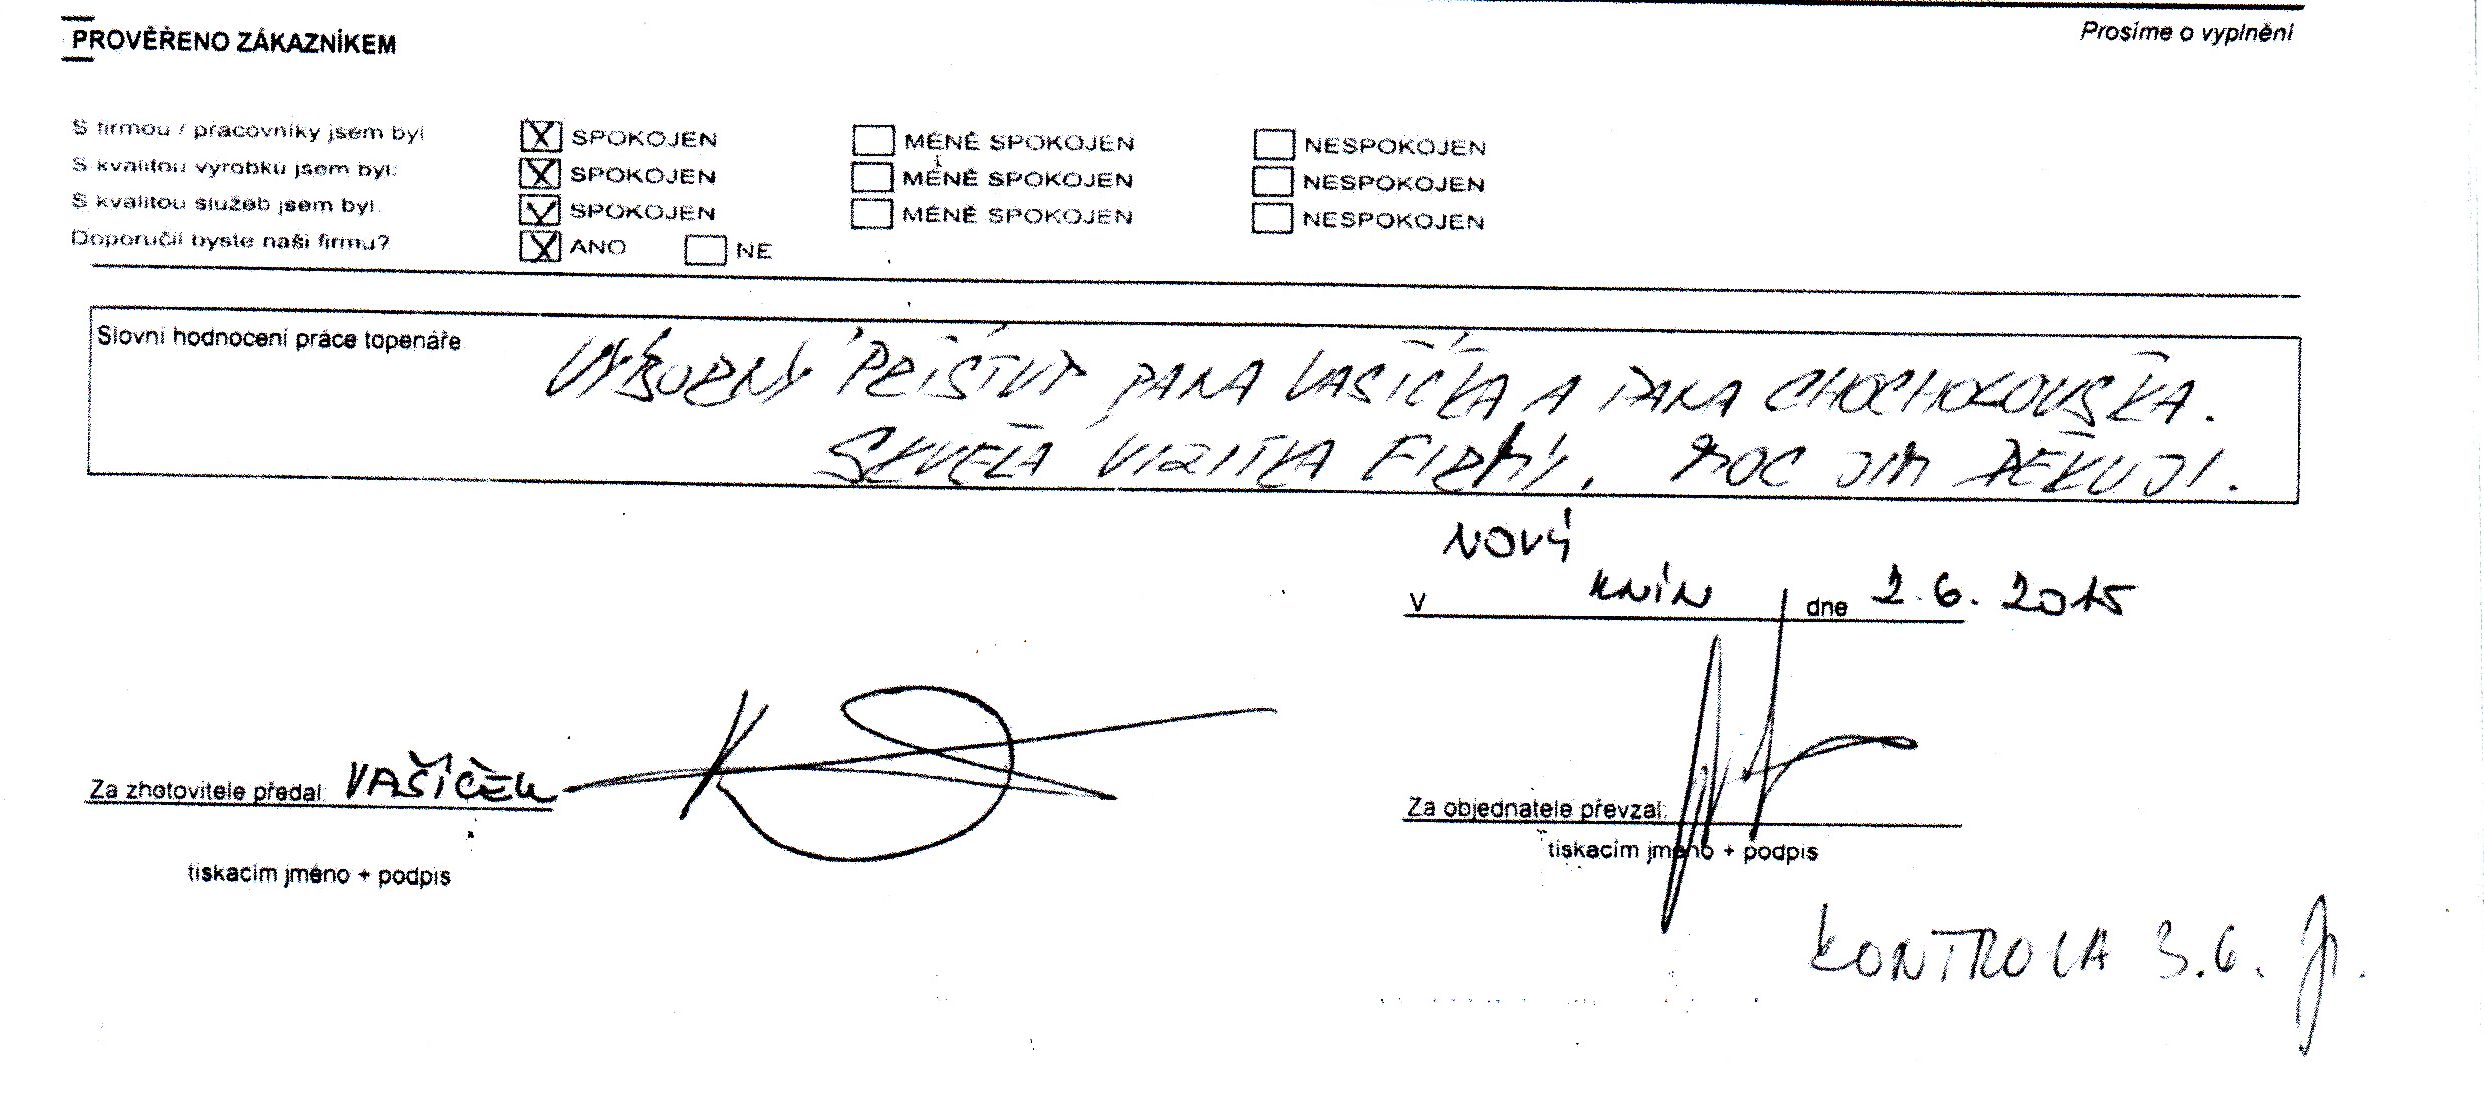 PROVĚŘENO ZÁKAZNÍKEM
Prosíme o vyplnění
S firmou / pracovníky jsem byl SPOKOJEN MÉNĚ SPOKOJEN NESPOKOJEN
S kvalitou výrobků jsem byl: SPOKOJEN MÉNĚ SPOKOJEN NESPOKOJEN
S kvalitou služeb jsem byl: SPOKOJEN MÉNĚ SPOKOJEN NESPOKOJEN
Doporučil byste naši firmu? ANO NE
Slovní hodnocení práce topenáře
VÝBORNÝ PŘÍSTUP PANA VAŠÍČKA A PANA CHOCHOLOUŠKA.
SKVĚLÁ VIZITKA FIRMY. MOC JIM DĚKUJI.
NOVÝ
V KNÍN dne 2.6. 2015
Za zhotovitele předal: VAŠÍČEK
Za objednatele převzal:
tiskacím jméno + podpis
tiskacím jméno + podpis
KONTROLA 3.6.